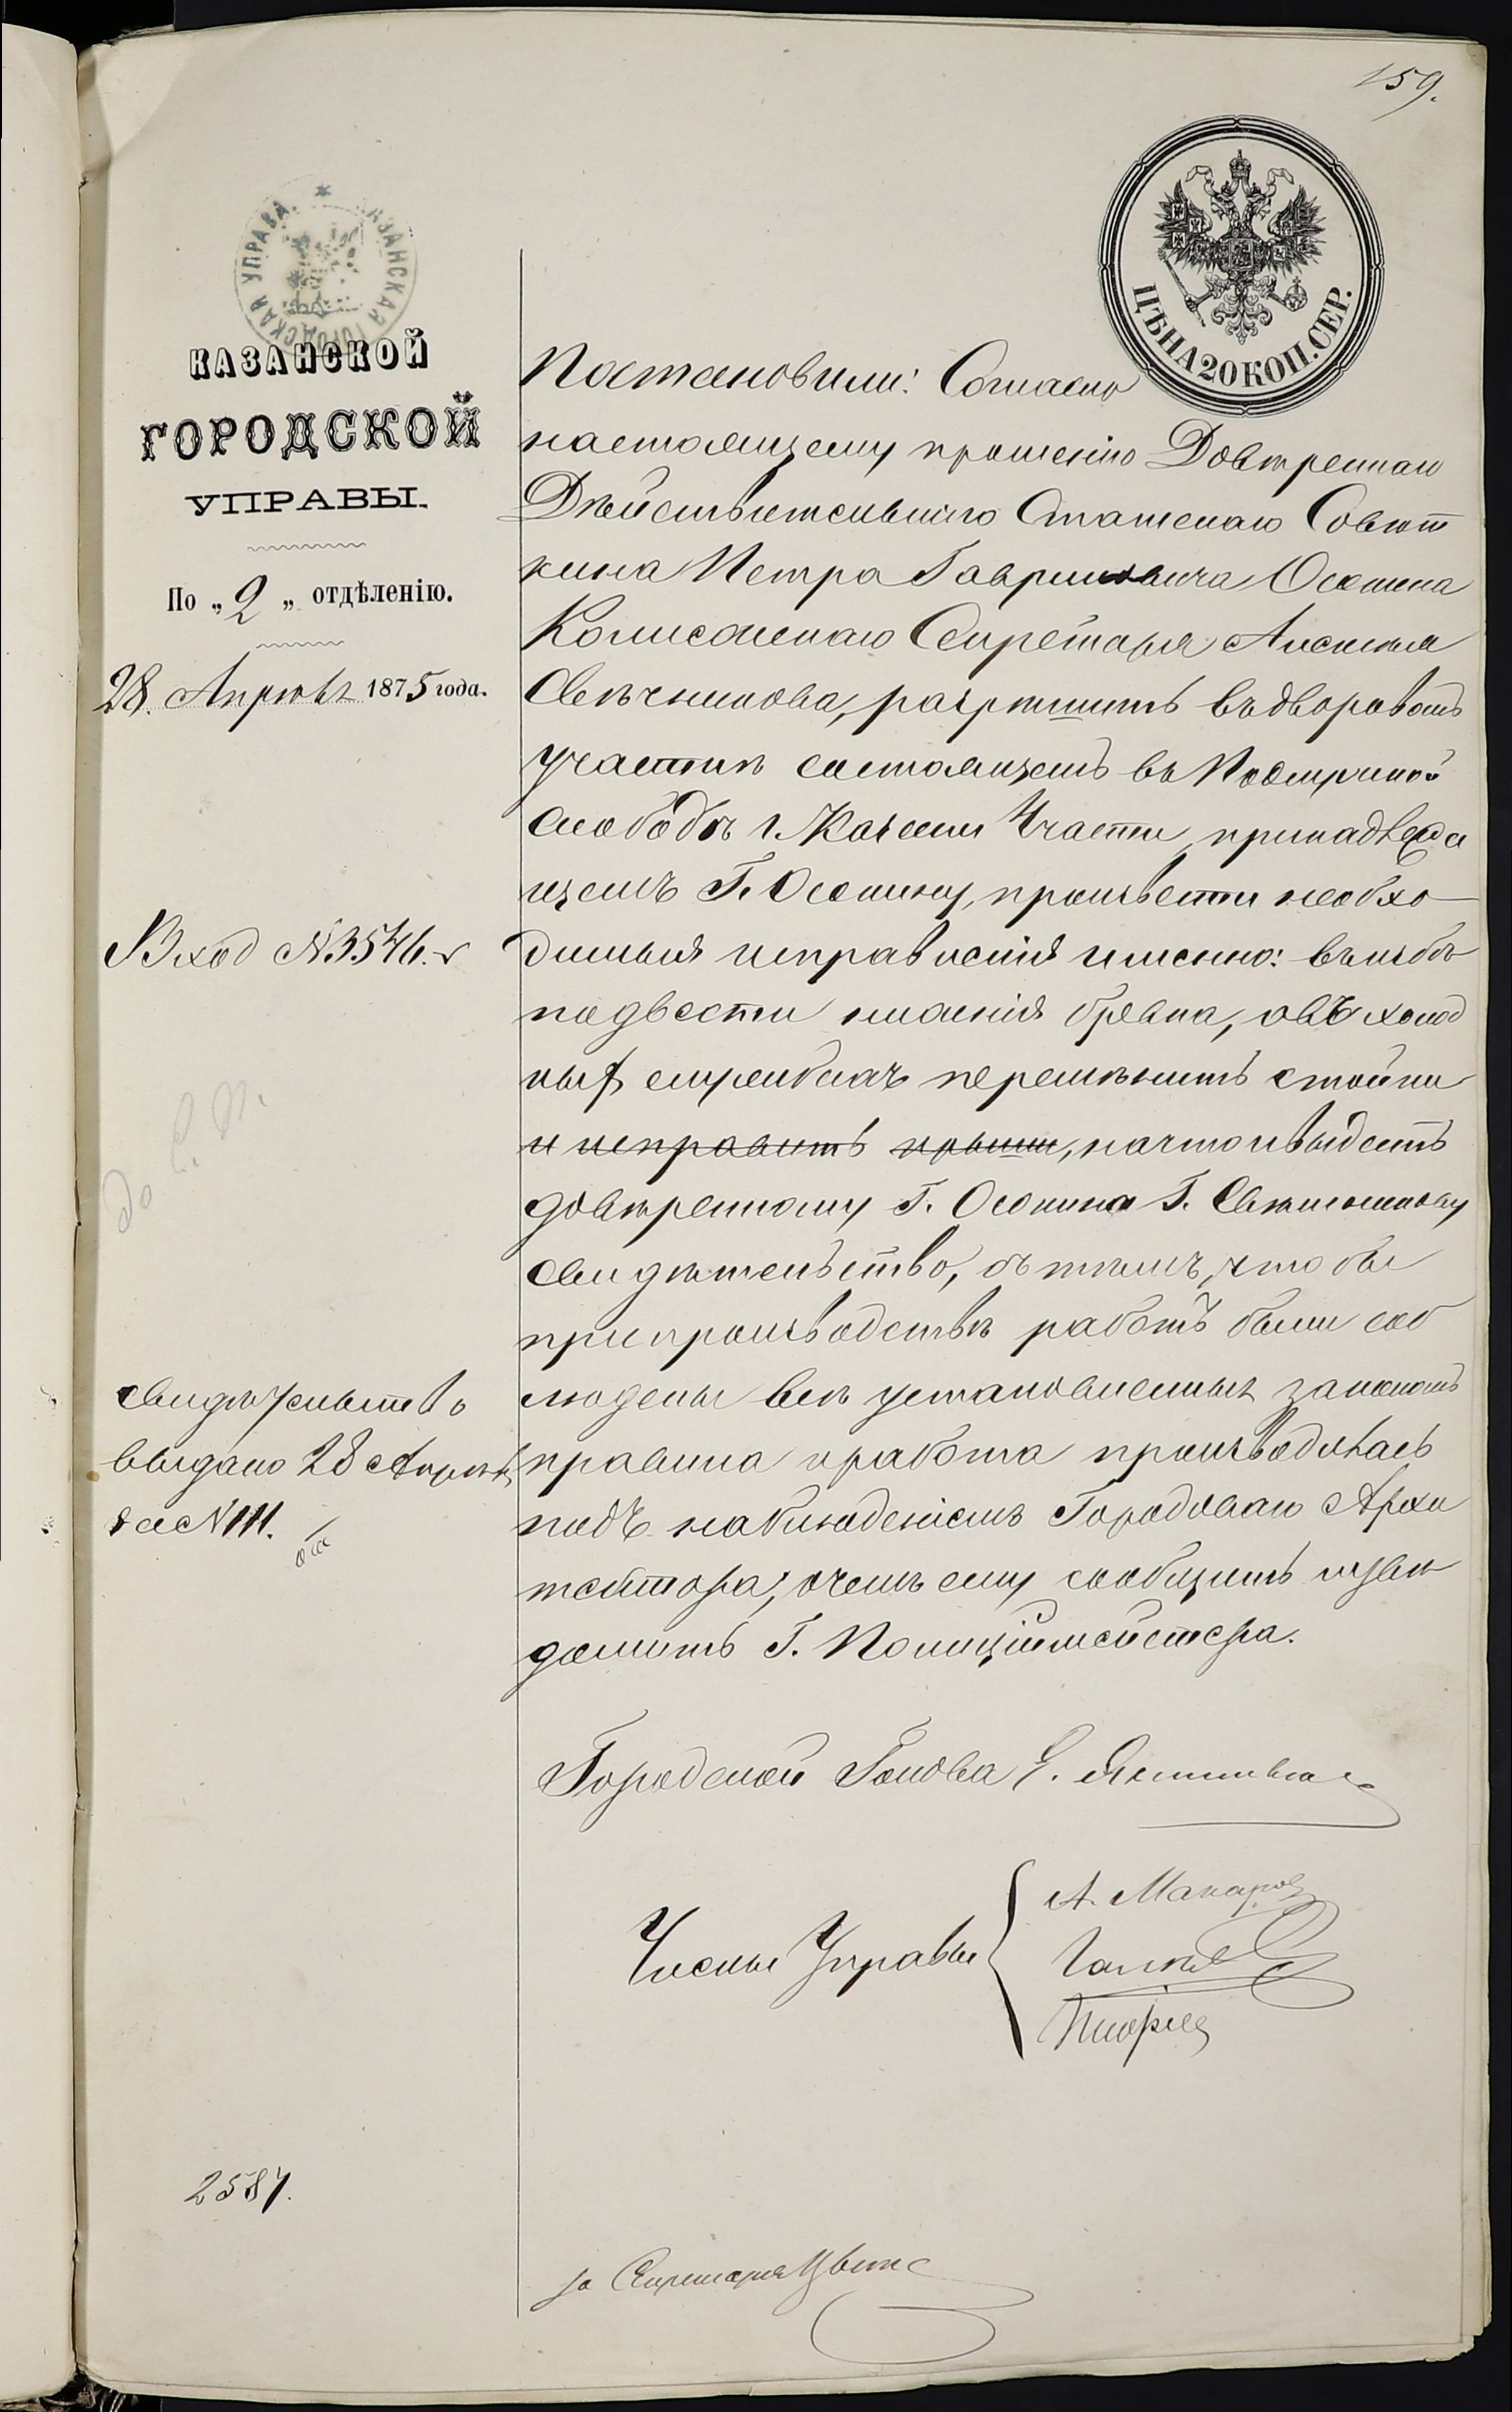 159.
КАЗАНСКАЯ ГОРОДСКАЯ УПРАВА.
ЦѢНА 20 КОП. СЕР.
КАЗАНСКОЙ
ГОРОДСКОЙ
УПРАВЫ.
По „2„ отдѣленію.
28. Апрѣля 1875 года.
Вход №3546.
Свидѣтельство
выдано 28 Апрѣля
за №111.
2587.
Постановили: Согласно
настоящему прошенію Довѣреннаго
Дѣйствительнаго Статскаго Совѣт
ника Петра Гавриловича Осокина
Коллежскаго Секретаря Алексѣя
Свѣчникова, разрѣшить въ дворовомъ
участкѣ состоящемъ въ
слободѣ г. Казани части, принадлежа
щемъ Г. Осокину, произвести необхо
димыя исправленія именно: въ избѣ
подвести нижнія бревна, а въ холод
ныхъ службахъ перемѣнить стойки
и исправить крыши, на что и выдать
довѣренному Г. Осокина Г. Свѣчникову
свидѣтельство, съ тѣмъ, что бы
при производствѣ работъ были соб
людены всѣ установленныя закономъ
правила и работа производилась
подъ наблюденіемъ Городоваго Архи
тектора, о чемъ ему сообщить и увѣ
домить Г. Полиціймейстера.
Городской Голова Э. Янишевскій
Члены Управы
А. Макаров
за Секретаря